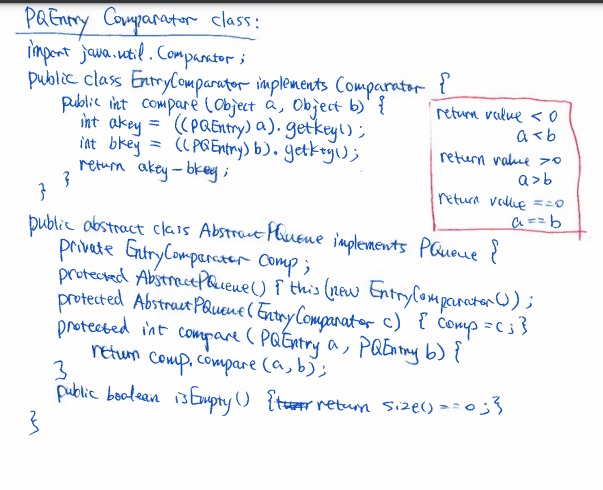 PQEntry Comparator class:
import java.util.Comparator;
public class EntryComparator implements Comparator {
public int compare (Object a, Object b) {
int akey = ((PQEntry) a).getkey();
int bkey = ((PQEntry) b).getkey();
return akey - bkey;
}
}
return value < 0
a < b
return value > 0
a > b
return value == 0
a == b
public abstract class AbstractPQueue implements PQueue {
private EntryComparator comp;
protected AbstractPQueue() { this (new EntryComparator());
protected AbstractPQueue (EntryComparator c) { comp = c; }
protected int compare (PQEntry a, PQEntry b) {
return comp.compare (a, b);
}
public boolean isEmpty() { return size() == 0; }
}